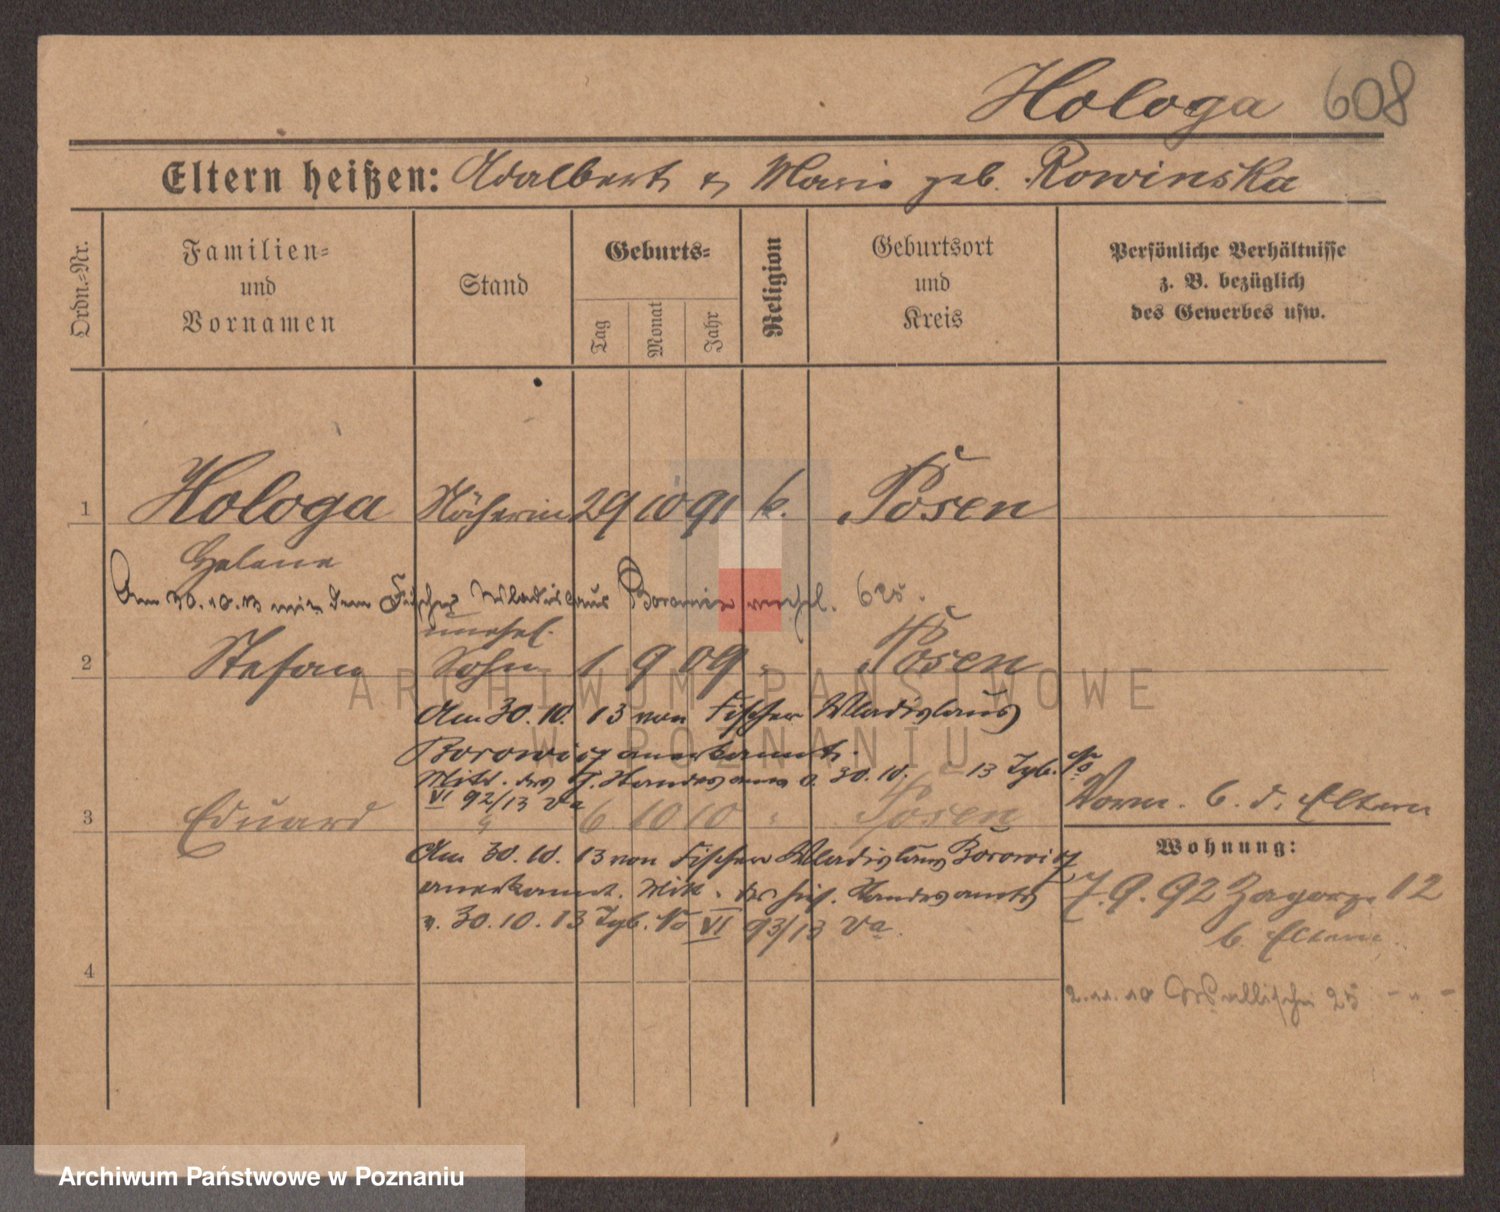 Hologa 608
Eltern heißen: Adalbert & Marie geb. Rowinska
Ordn.-Nr.
Familien-
und
Vornamen
Stand
Geburts-
Tag
Monat
Jahr
Religion
Geburtsort
und
Kreis
Persönliche Verhältnisse
z. B. bezüglich
des Gewerbes usw.
1 Hologa Näherin 29 10 91 k. Posen
Helene
Am 30.10.13 mit dem Fischer Wladislaus verehel. 625.
unehel.
2 Stefan Sohn 1 9 09 " Posen
Am 30. 10. 13 von Fischer Wladislaus
Borowicz anerkannt.
Mitt. des Standesamts v. 30. 10. 13 Tgb. No
VI 92/13 Va
3 Eduard " 6 10 10 " Posen
Vorm. b. d. Eltern
Am 30. 10. 13 von Fischer Wladislaus Borowicz
anerkannt. Mitt. des hies. Standesamts
v. 30. 10. 13 Tgb. No VI 93/13 Va.
Wohnung:
7. 9. 92 Zagorze 12
b. Eltern
4
2.11.10 Wallischei 25 - " -
ARCHIWUM PAŃSTWOWE
W POZNANIU
Archiwum Państwowe w Poznaniu